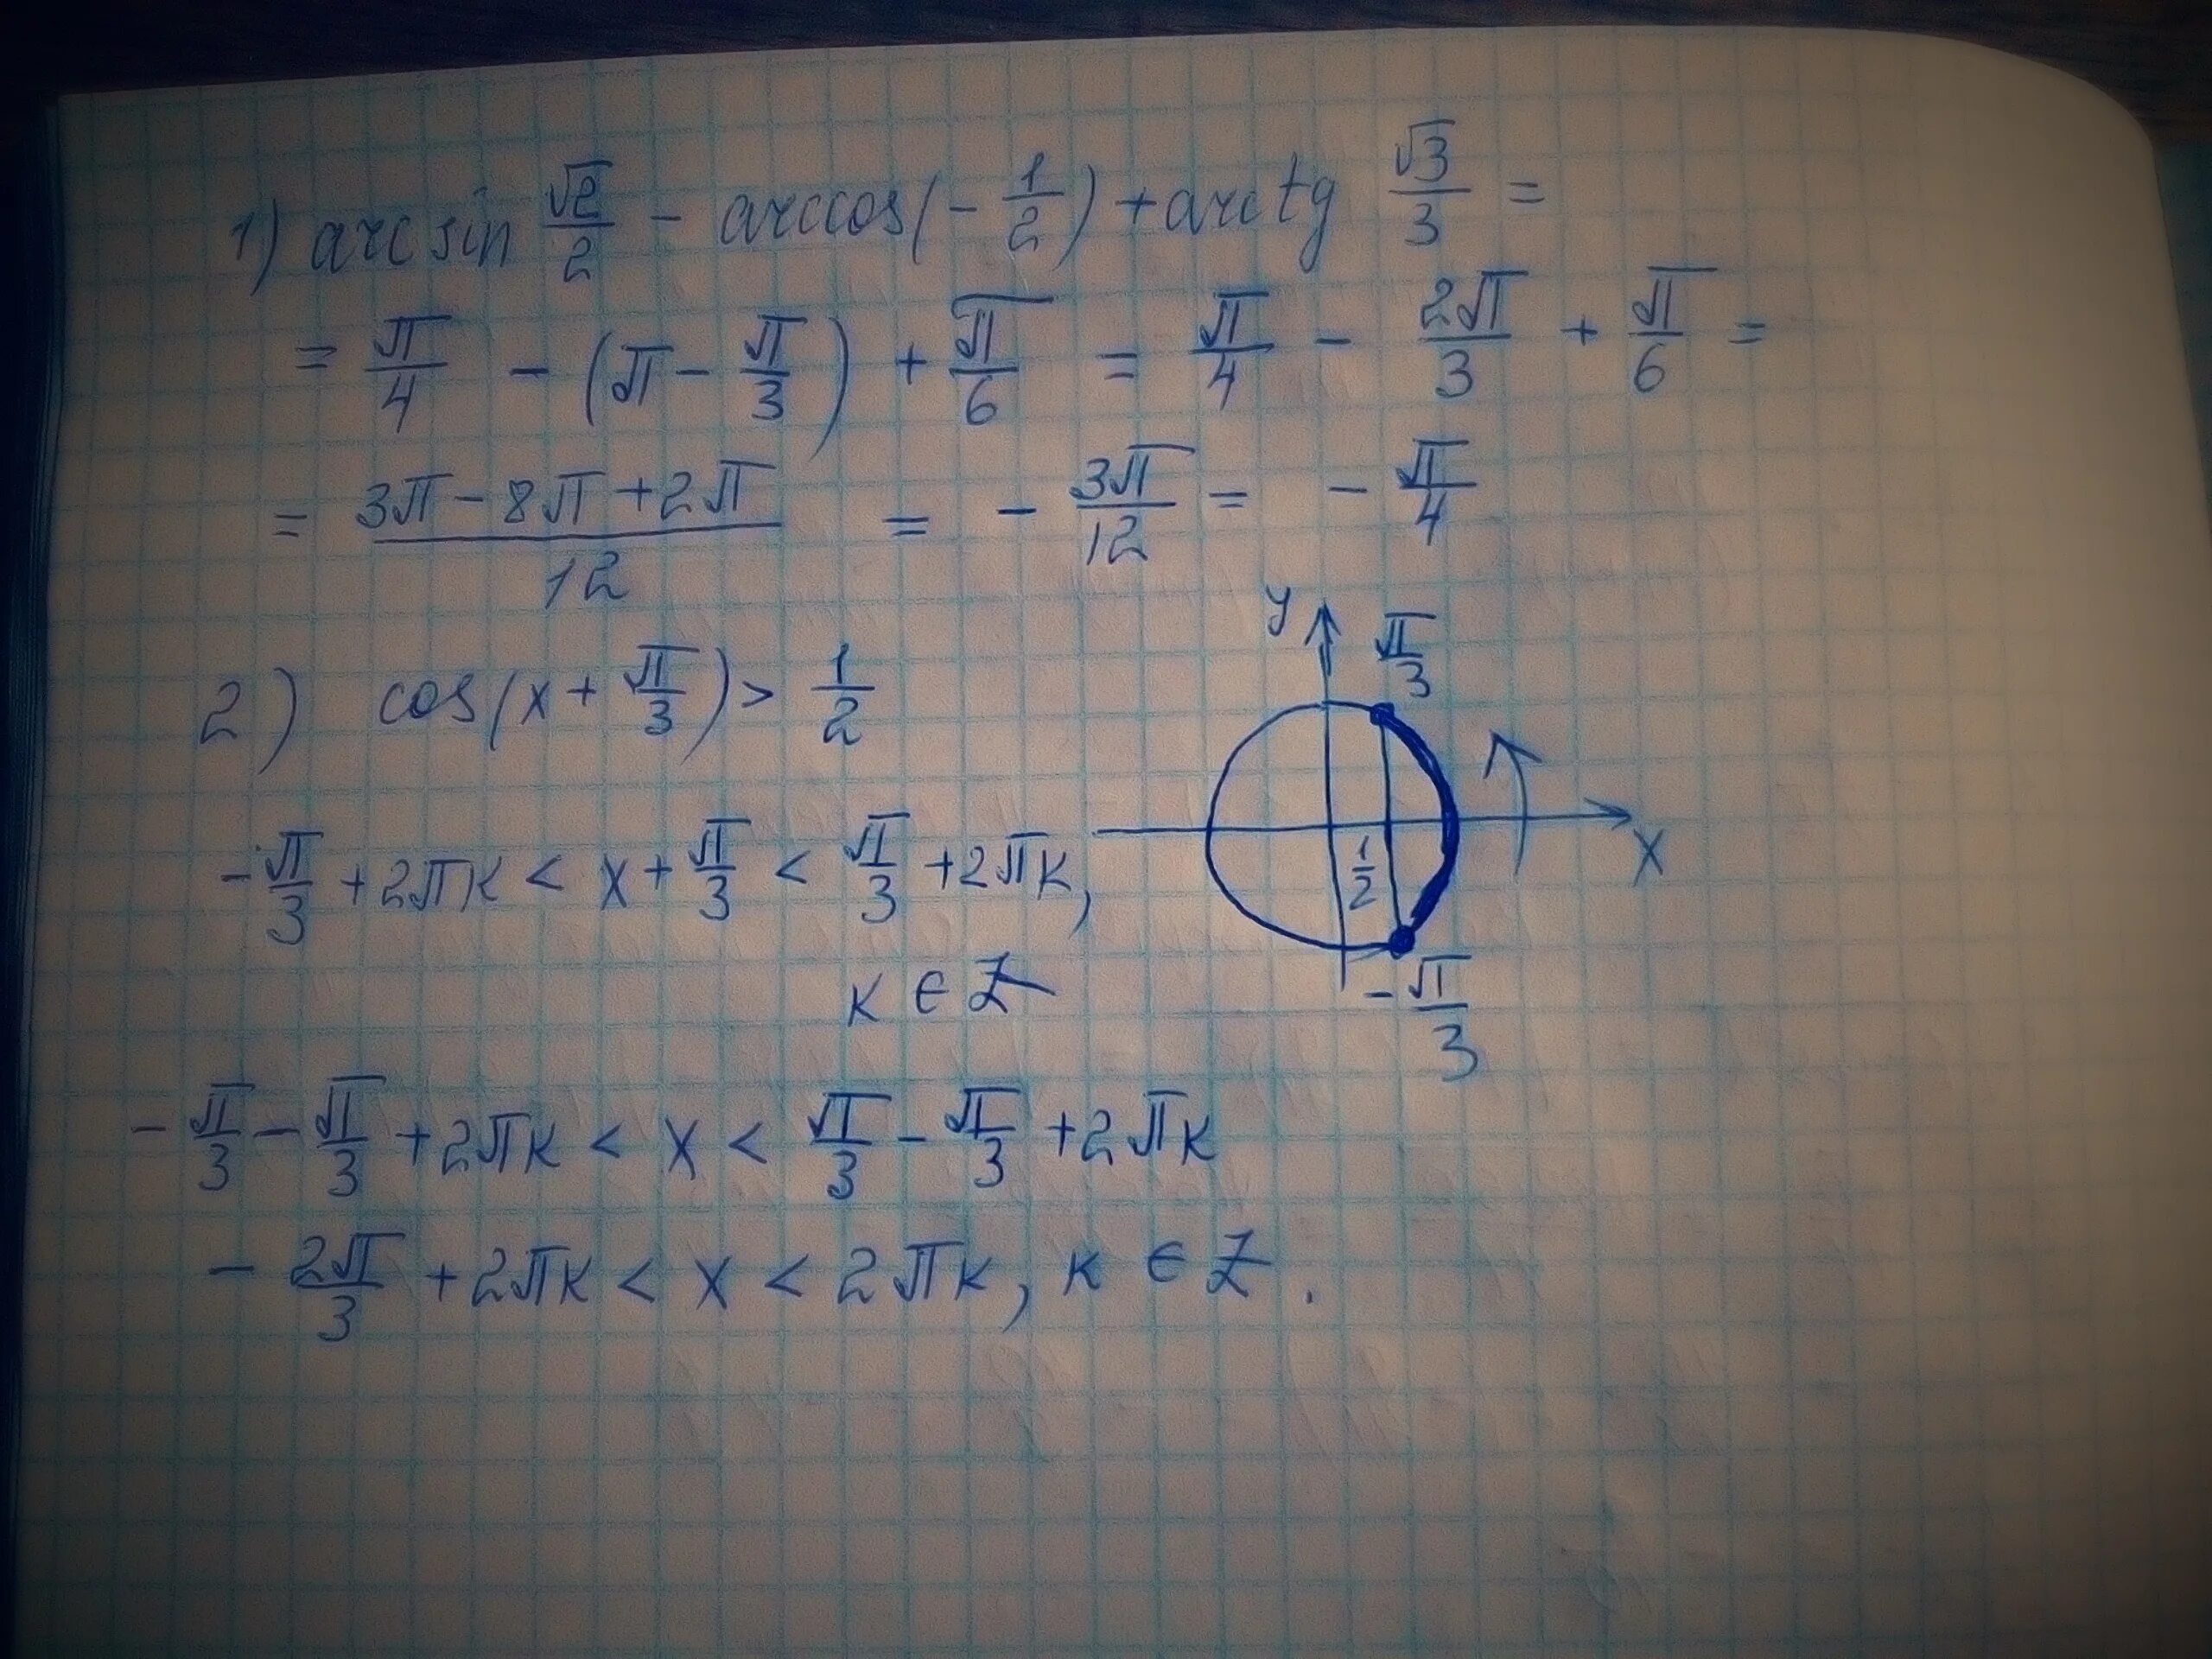 1) arcsin √2/2 - arccos(-1/2) + arctg √3/3 =
= π/4 - (π - π/3) + π/6 = π/4 - 2π/3 + π/6 =
= (3π - 8π + 2π)/12 = - 3π/12 = - π/4
2) cos(x + π/3) > 1/2
y
π/3
-π/3 + 2πk < x + π/3 < π/3 + 2πk,
1/2
x
k ∈ Z
-π/3
-π/3 - π/3 + 2πk < x < π/3 - π/3 + 2πk
- 2π/3 + 2πk < x < 2πk, k ∈ Z.